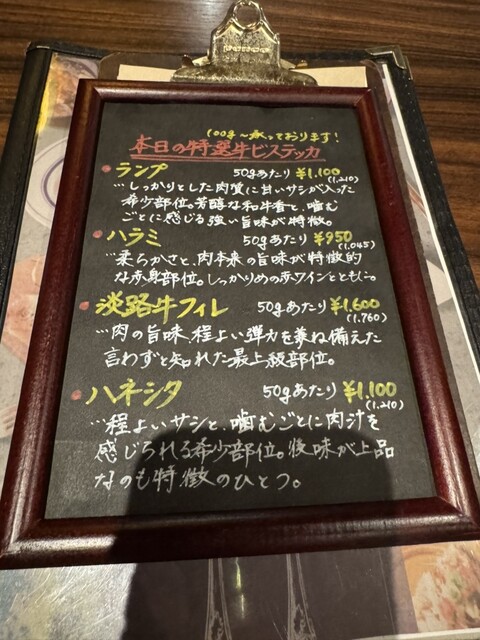 100g〜承っております!
本日の特選牛ビステッカ
ランプ 50gあたり ¥1,100
(1,210)
…しっかりとした肉質に甘いサシが入った
希少部位。芳醇な和牛香と、噛む
ごとに感じる強い旨味が特徴。
ハラミ 50gあたり ¥950
(1,045)
…柔らかさと、肉本来の旨味が特徴的
な赤身部位。しっかりめの赤ワインとともに。
淡路牛フィレ 50gあたり ¥1,600
(1,760)
…肉の旨味、程よい弾力を兼ね備えた
言わずと知れた最上級部位。
ハネシタ 50gあたり ¥1,100
(1,210)
…程よいサシと、噛むごとに肉汁を
感じられる希少部位。後味が上品
なのも特徴のひとつ。